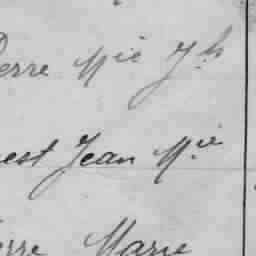 erre Mie Jh
est Jean Mie
erre Marie